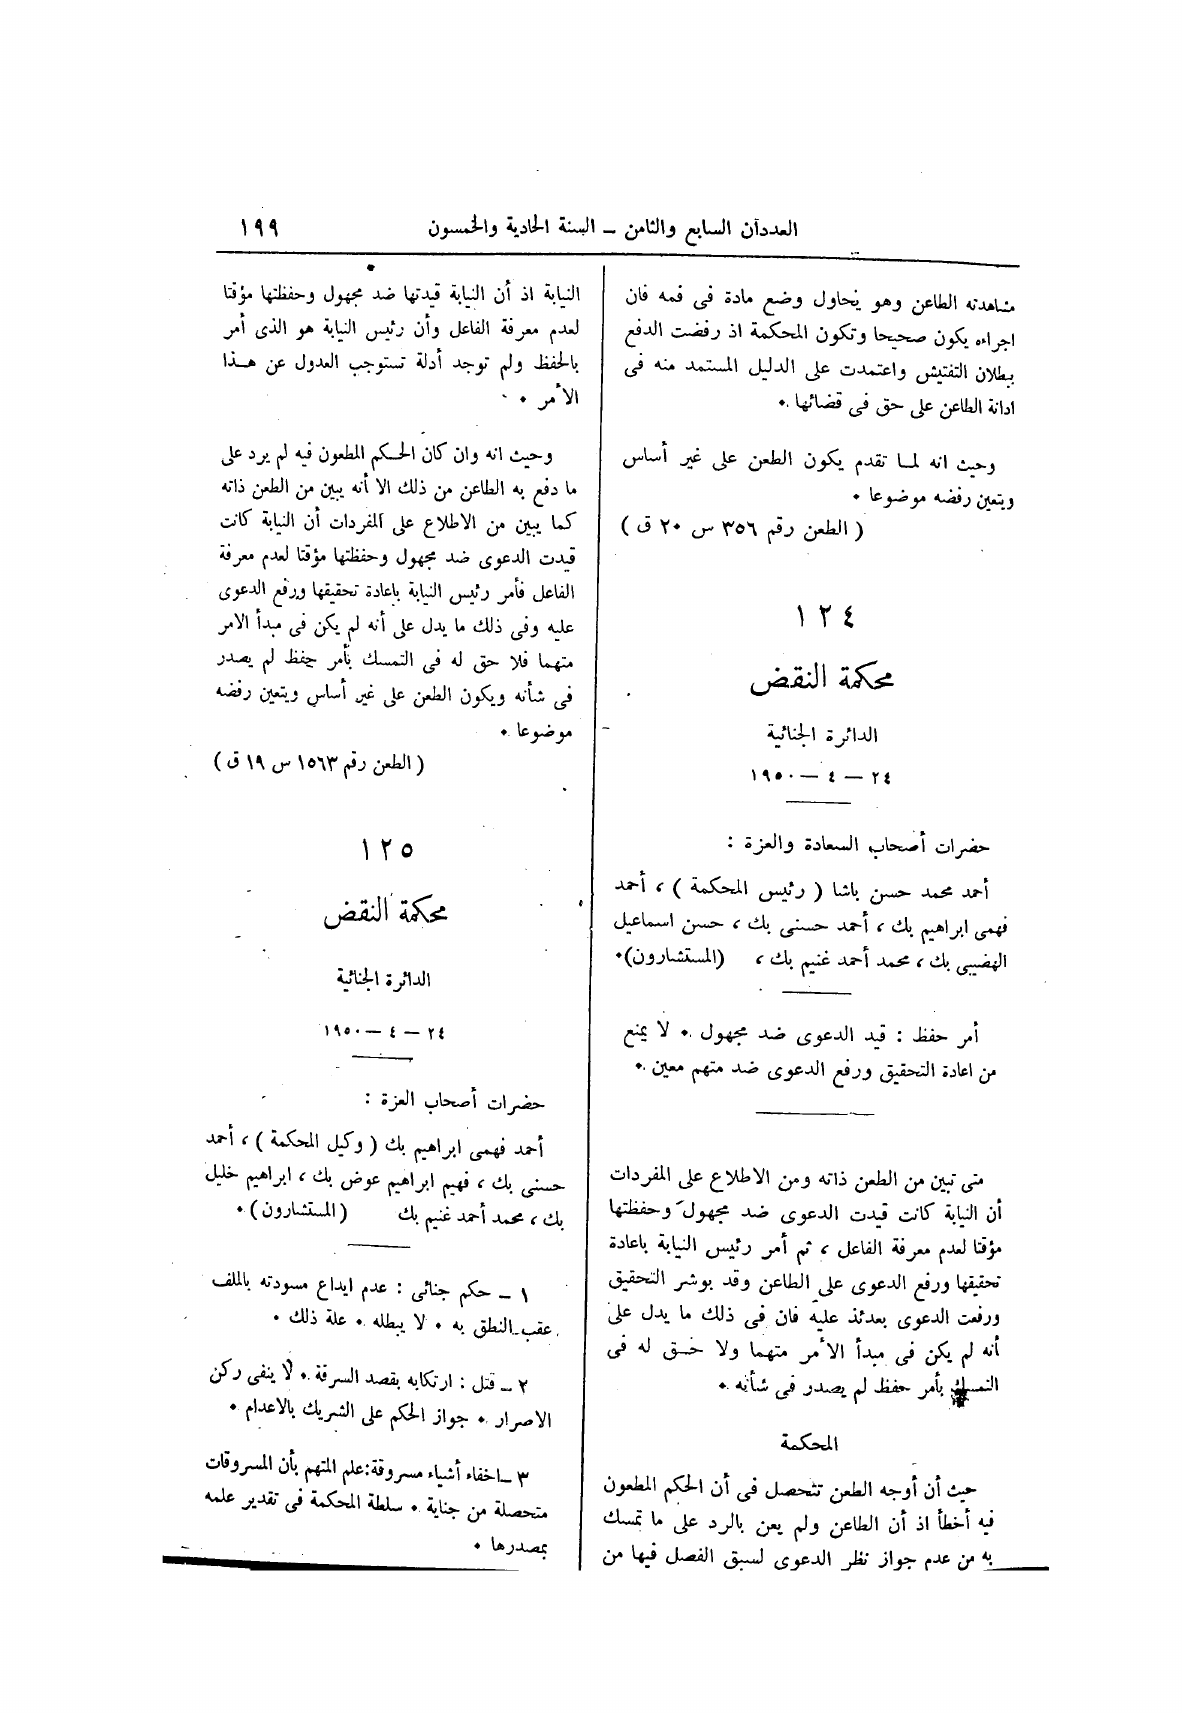 العددان السابع والثامن – السنة الحادية والخمسون
١٩٩
مشاهدته الطاعن وهو يحاول وضع مادة فى فمه فان
اجراءه يكون صحيحا وتكون المحكمة اذ رفضت الدفع
ببطلان التفتيش واعتمدت على الدليل المستمد منه فى
ادانة الطاعن على حق فى قضائها ٠
وحيث انه لما تقدم يكون الطعن على غير أساس
ويتعين رفضه موضوعا ٠
( الطعن رقم ٣٥٦ س ٢٠ ق )
١٢٤
محكمة النقض
الدائرة الجنائية
٢٤ – ٤ – ١٩٥٠
حضرات أصحاب السعادة والعزة :
أحمد محمد حسن باشا ( رئيس المحكمة ) ، أحمد
فهمى ابراهيم بك ، أحمد حسنى بك ، حسن اسماعيل
الهضيبى بك ، محمد أحمد غنيم بك ، (المستشارون)٠
أمر حفظ : قيد الدعوى ضد مجهول ٠ لا يمنع
من اعادة التحقيق ورفع الدعوى ضد متهم معين ٠
متى تبين من الطعن ذاته ومن الاطلاع على المفردات
أن النيابة كانت قيدت الدعوى ضد مجهول وحفظتها
مؤقتا لعدم معرفة الفاعل ، ثم أمر رئيس النيابة باعادة
تحقيقها ورفع الدعوى على الطاعن وقد بوشر التحقيق
ورفعت الدعوى بعدئذ عليه فان فى ذلك ما يدل على
أنه لم يكن فى مبدأ الأمر متهما ولا حق له فى
التمسك بأمر حفظ لم يصدر فى شأنه ٠
المحكمة
حيث أن أوجه الطعن تتحصل فى أن الحكم المطعون
فيه أخطأ اذ أن الطاعن ولم يعن بالرد على ما تمسك
به من عدم جواز نظر الدعوى لسبق الفصل فيها من
النيابة اذ أن النيابة قيدتها ضد مجهول وحفظتها مؤقتا
لعدم معرفة الفاعل وأن رئيس النيابة هو الذى أمر
بالحفظ ولم توجد أدلة تستوجب العدول عن هذا
الأمر ٠
وحيث انه وان كان الحكم المطعون فيه لم يرد على
ما دفع به الطاعن من ذلك الا أنه يبين من الطعن ذاته
كما يبين من الاطلاع على المفردات أن النيابة كانت
قيدت الدعوى ضد مجهول وحفظتها مؤقتا لعدم معرفة
الفاعل فأمر رئيس النيابة باعادة تحقيقها ورفع الدعوى
عليه وفى ذلك ما يدل على أنه لم يكن فى مبدأ الامر
متهما فلا حق له فى التمسك بأمر حفظ لم يصدر
فى شأنه ويكون الطعن على غير أساس ويتعين رفضه
موضوعا ٠
( الطعن رقم ١٥٦٣ س ١٩ ق )
١٢٥
محكمة النقض
الدائرة الجنائية
٢٤ – ٤ – ١٩٥٠
حضرات أصحاب العزة :
أحمد فهمى ابراهيم بك ( وكيل المحكمة ) ، أحمد
حسنى بك ، فهيم ابراهيم عوض بك ، ابراهيم خليل
بك ، محمد أحمد غنيم بك ( المستشارون ) ٠
١ – حكم جنائى : عدم ايداع مسودته بالملف
عقب النطق به ٠ لا يبطله ٠ علة ذلك ٠
٢ – قتل : ارتكابه بقصد السرقة ٠ لا ينفى ركن
الاصرار ٠ جواز الحكم على الشريك بالاعدام ٠
٣ – اخفاء أشياء مسروقة: علم المتهم بأن المسروقات
متحصلة من جناية ٠ سلطة المحكمة فى تقدير علمه
بمصدرها ٠